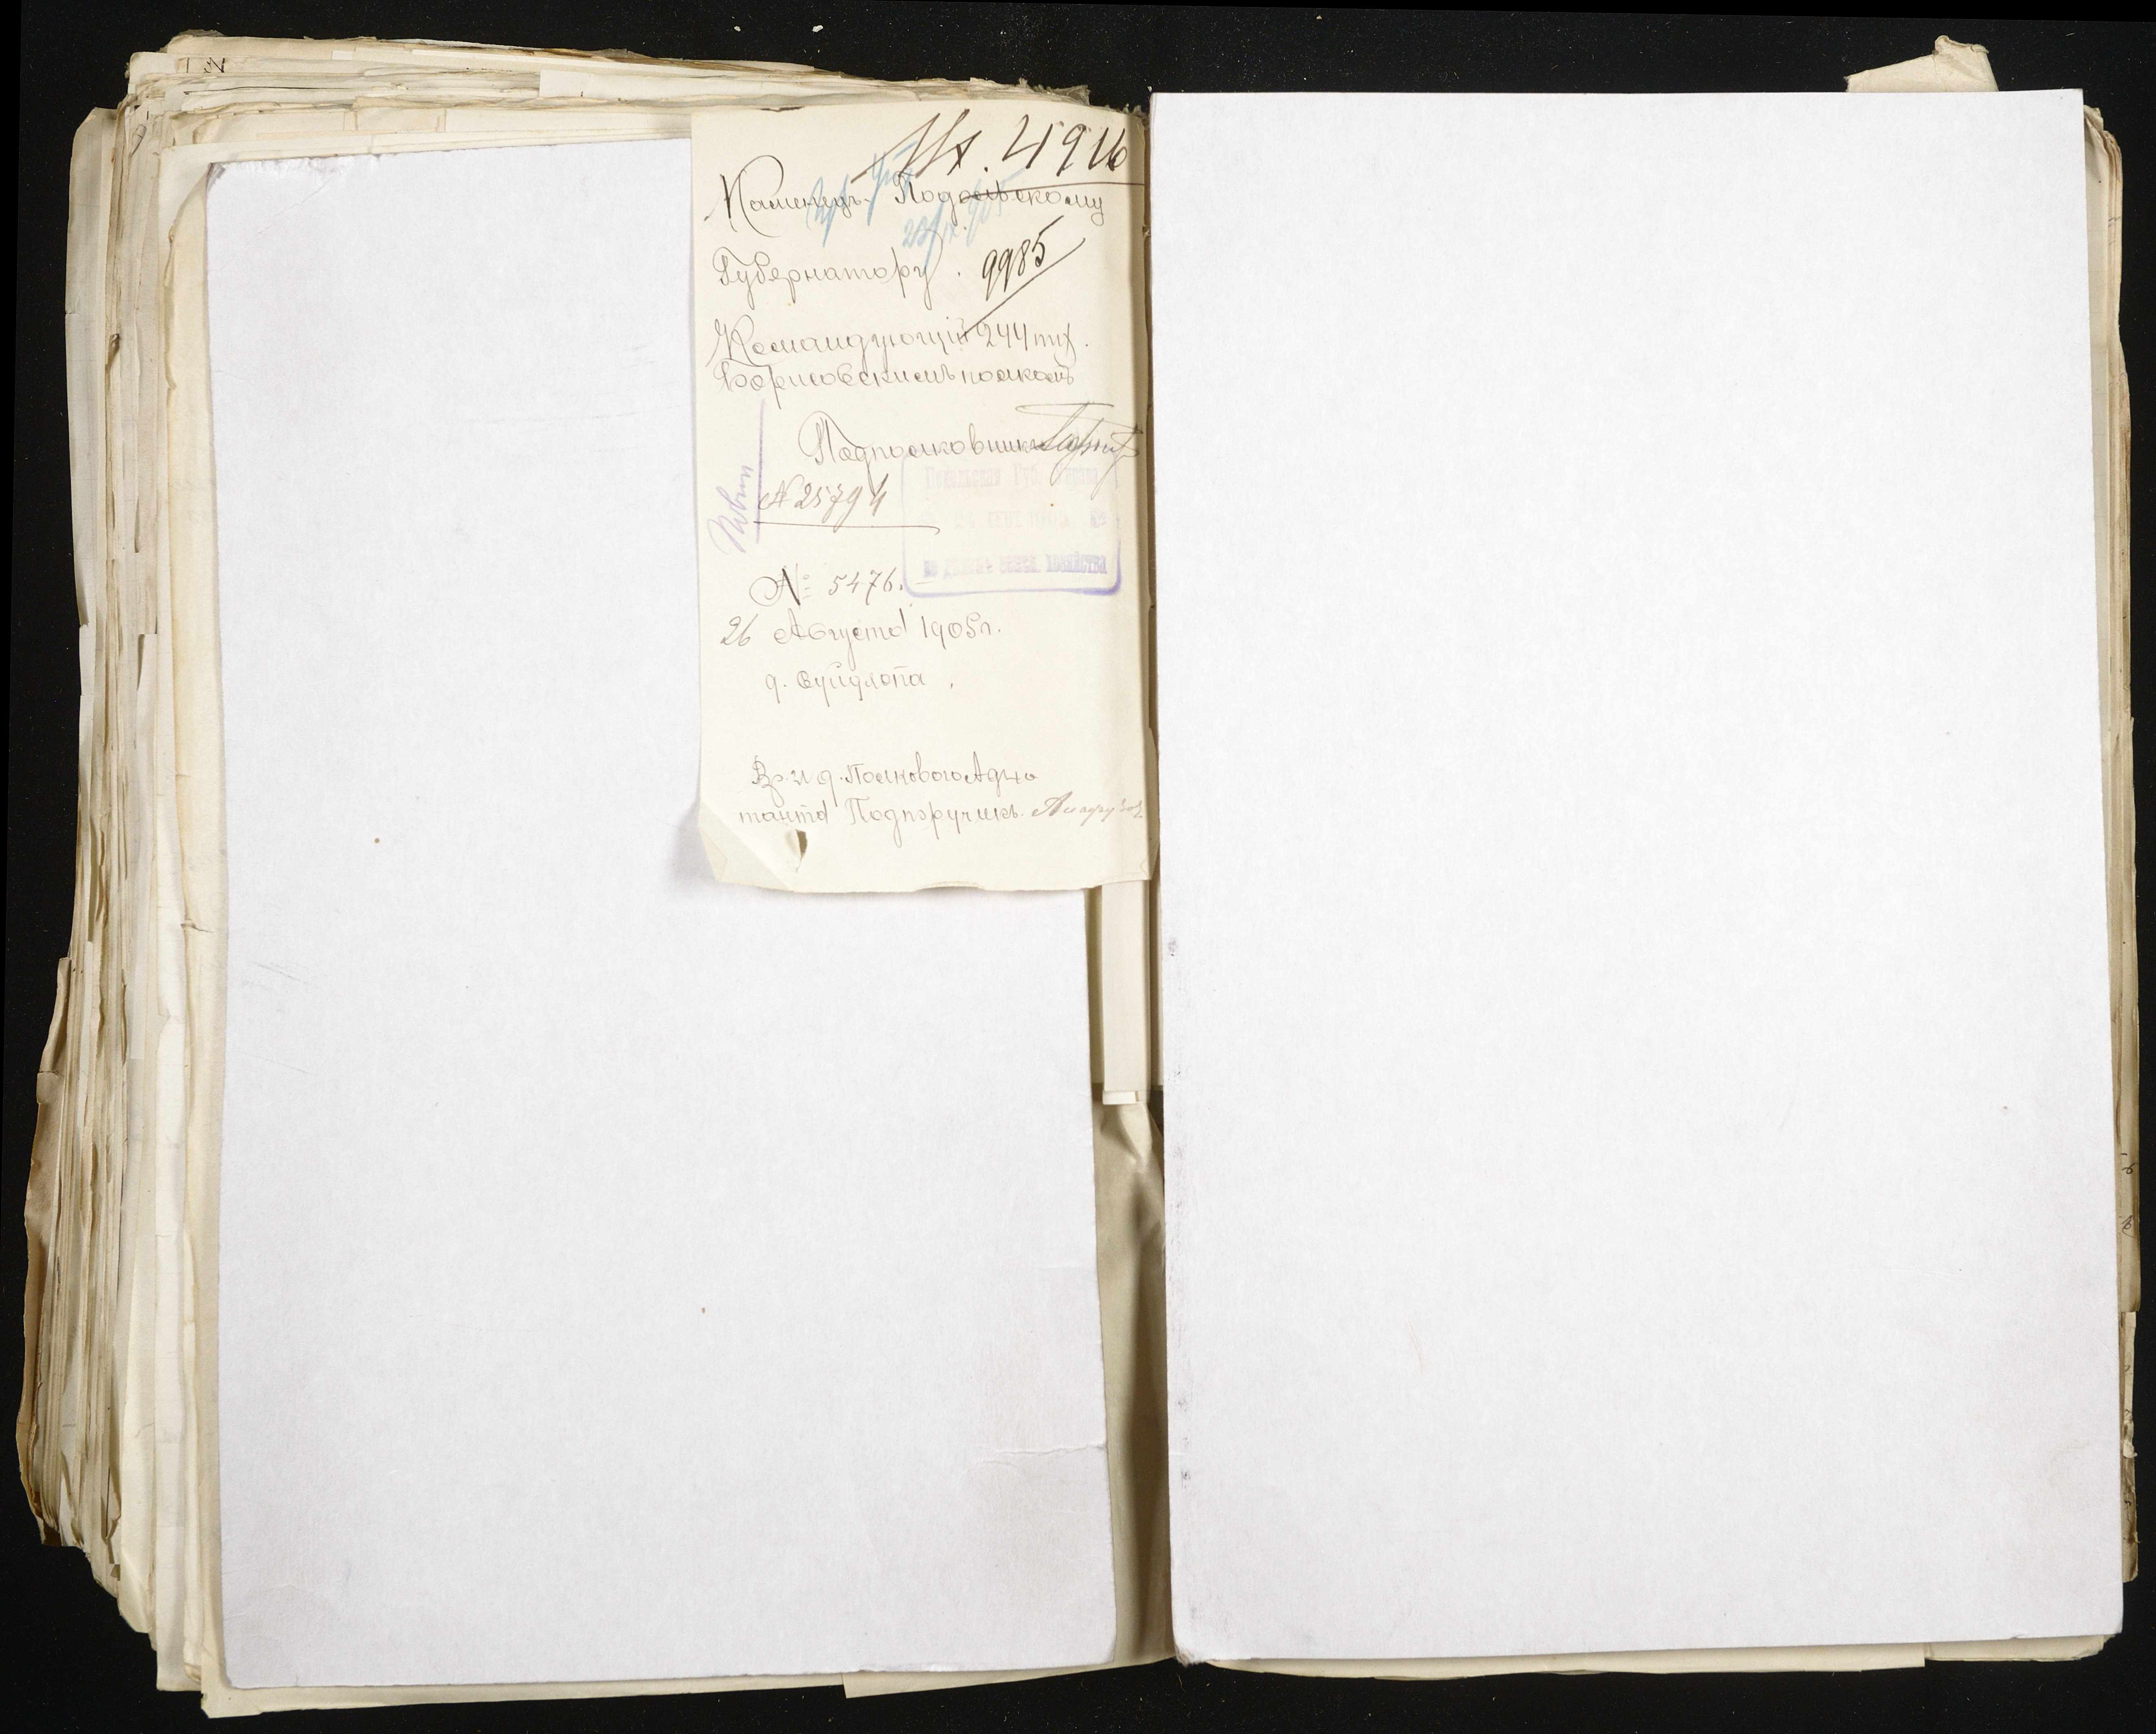 4916
Каменецъ-Подольскому
Губернатору.
9985
Командующій 244 пѣх.
Борисовскимъ полкомъ
Подполковникъ
№ 25794
Подольская Губ. Управа
по дѣламъ земск. хозяйства
№ 5476.
26 Августа 1905 г.
д.
Вр. и д. Полкового Адъю
танта Подпоручикъ